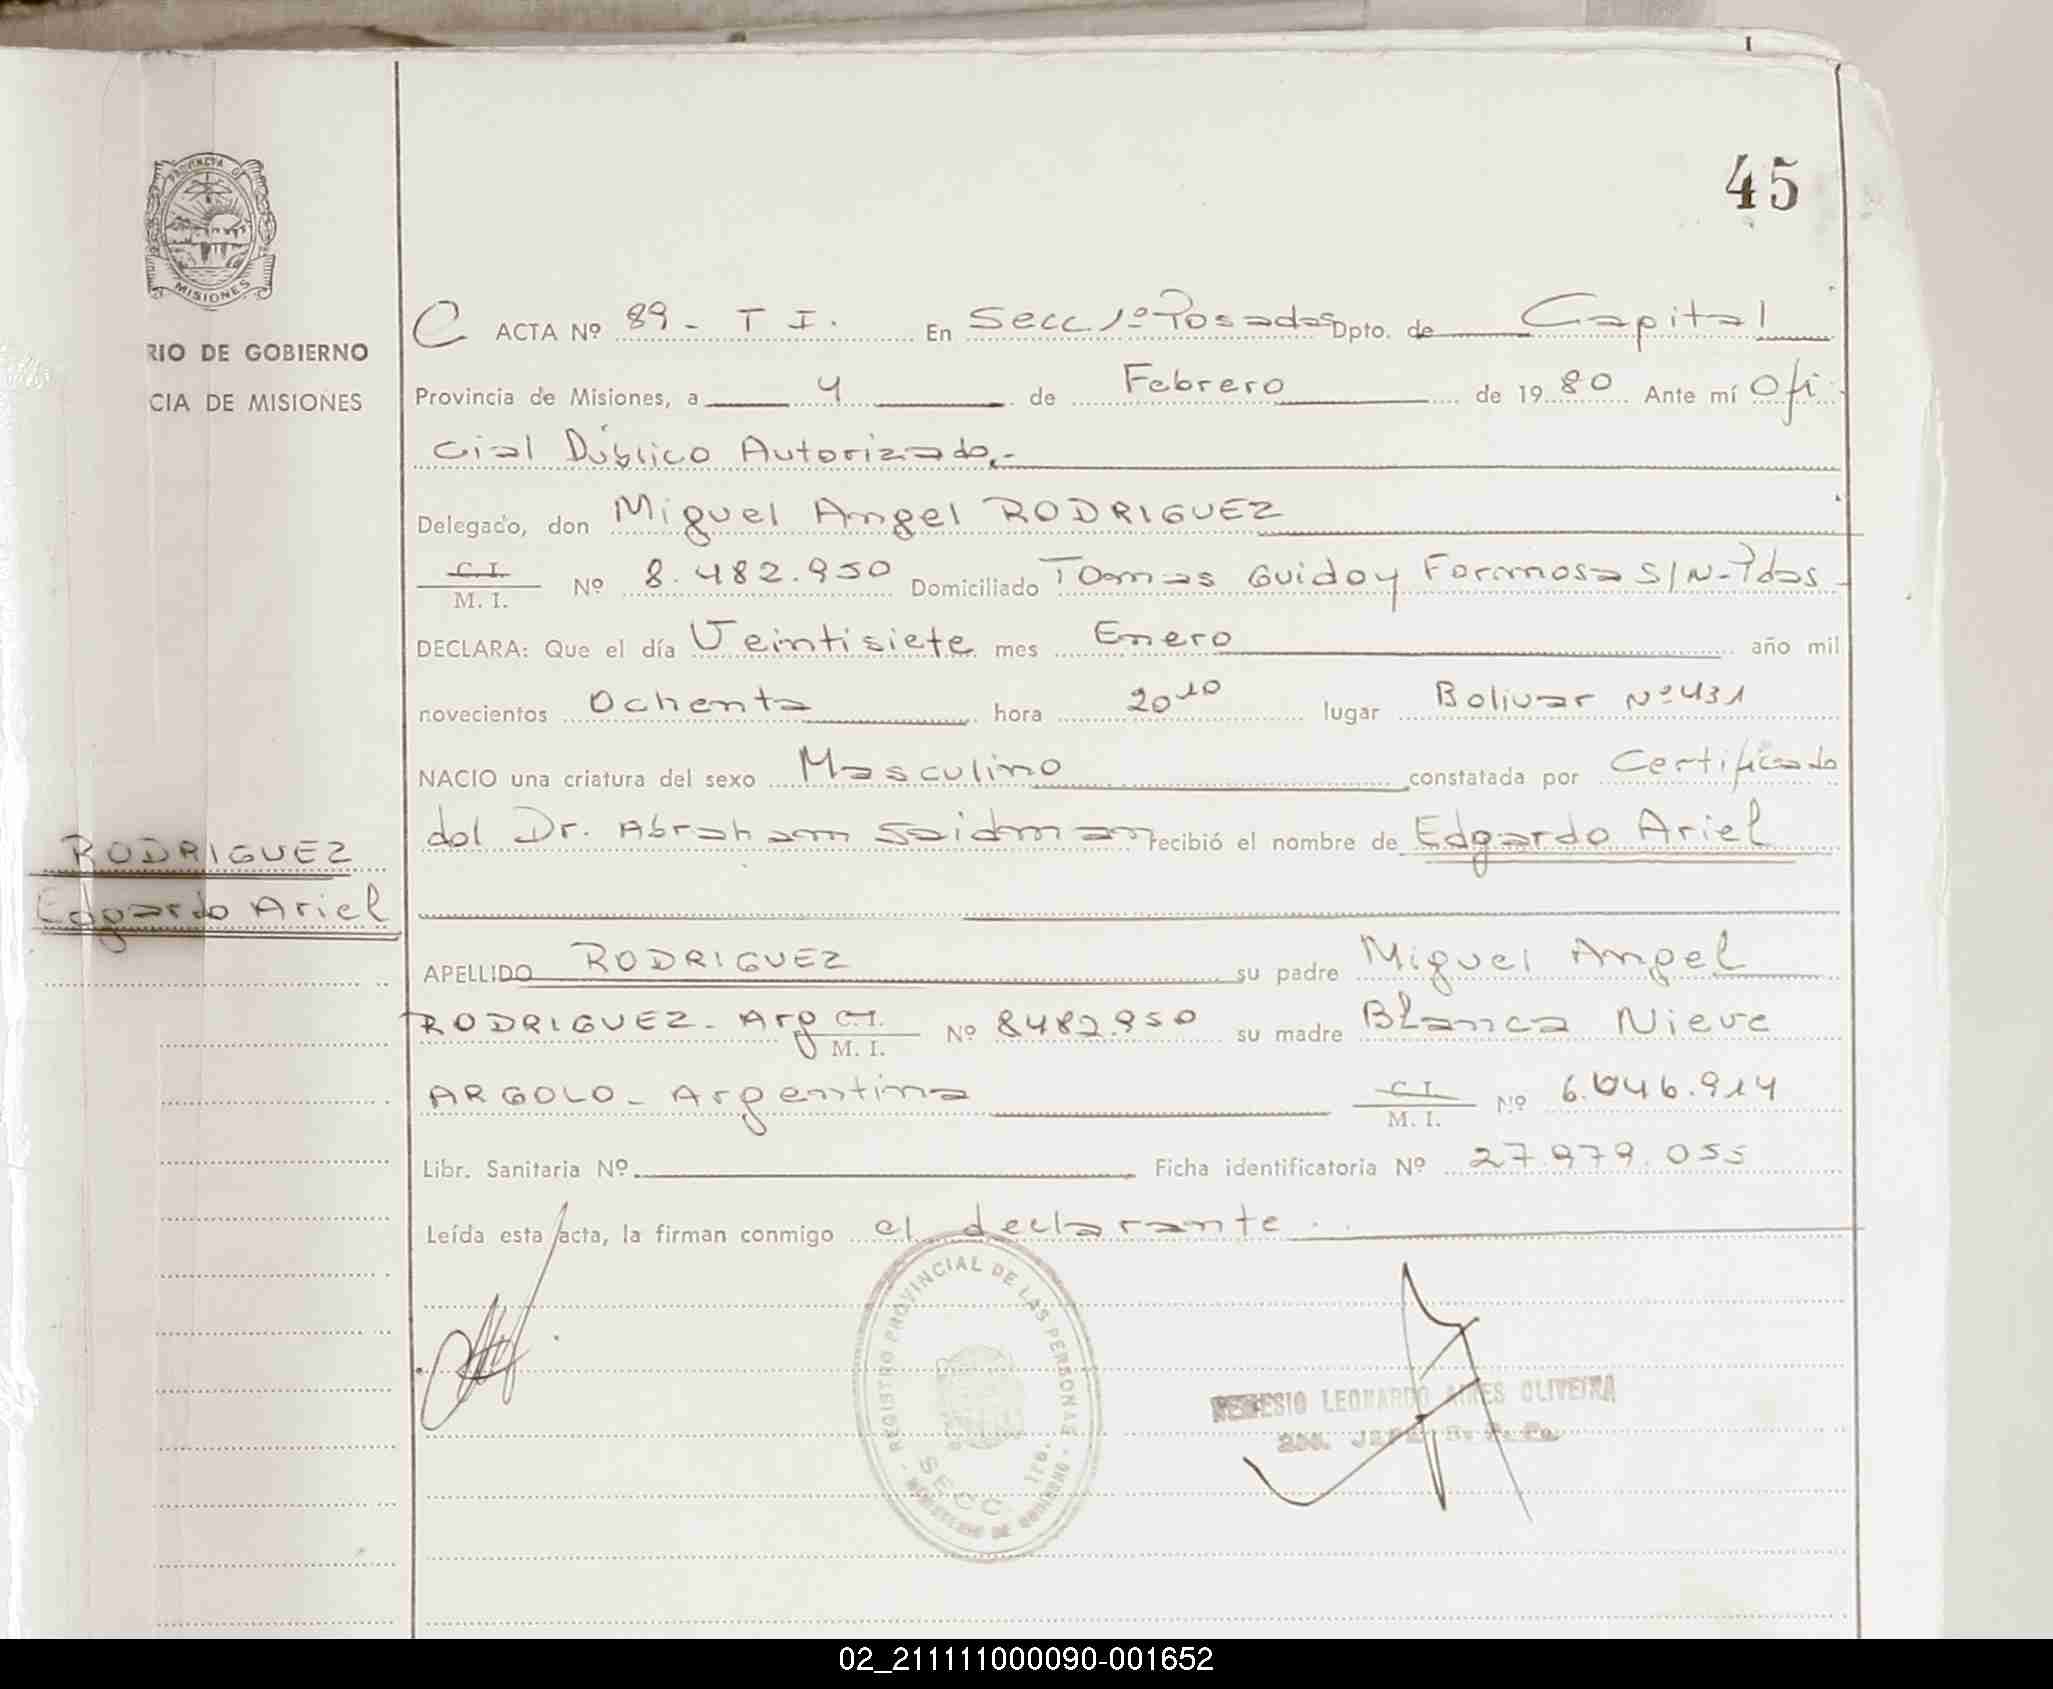 45
PROVINCIA D
MISIONES
RIO DE GOBIERNO
CIA DE MISIONES
C ACTA Nº 89 - T I. En Secc. 1º Posadas Dpto. de Capital
Provincia de Misiones, a 4 de Febrero de 1980 Ante mí Ofi
cial Público Autorizado.-
Delegado, don Miguel Angel RODRIGUEZ
C. I.
M. I. Nº 8.482.950 Domiciliado Tomas Guido y Formosa S/N-Pdas
DECLARA: Que el día Veintisiete mes Enero año mil
novecientos Ochenta hora 20 10 lugar Bolivar Nº 431
NACIO una criatura del sexo Masculino constatada por Certificado
del Dr. Abraham Saidman recibió el nombre de Edgardo Ariel
RODRIGUEZ
Edgardo Ariel
APELLIDO RODRIGUEZ su padre Miguel Angel
RODRIGUEZ - Arg C. I.
M. I. Nº 8482.950 su madre Blanca Nieve
ARGOLO - Argentina C. I.
M. I. Nº 6.046.914
Libr. Sanitaria Nº Ficha identificatoria Nº 27.979.055
Leída esta acta, la firman conmigo el declarante.
REGISTRO PROVINCIAL DE LAS PERSONAS
SECC. 1ra.
MINISTERIO DE GOBIERNO
LEONARDO AIRES OLIVEIRA
02_211111000090-001652